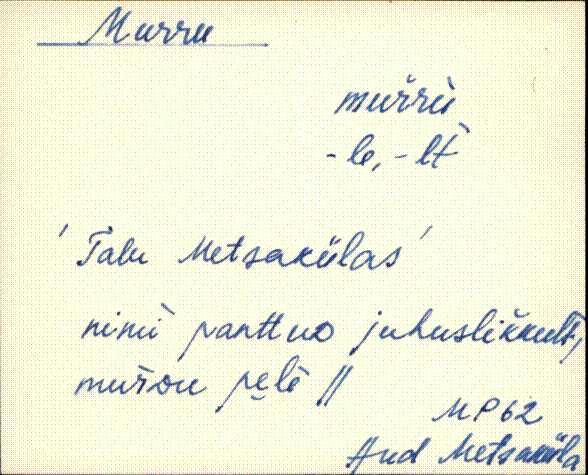 Murru
mur̆rù
-le, -lt̀
'Talu Metsakülas'
nimì panttuo juhuslik̆kult,
mur̆ou pe̮lè //
MP62
Aud Metsaküla